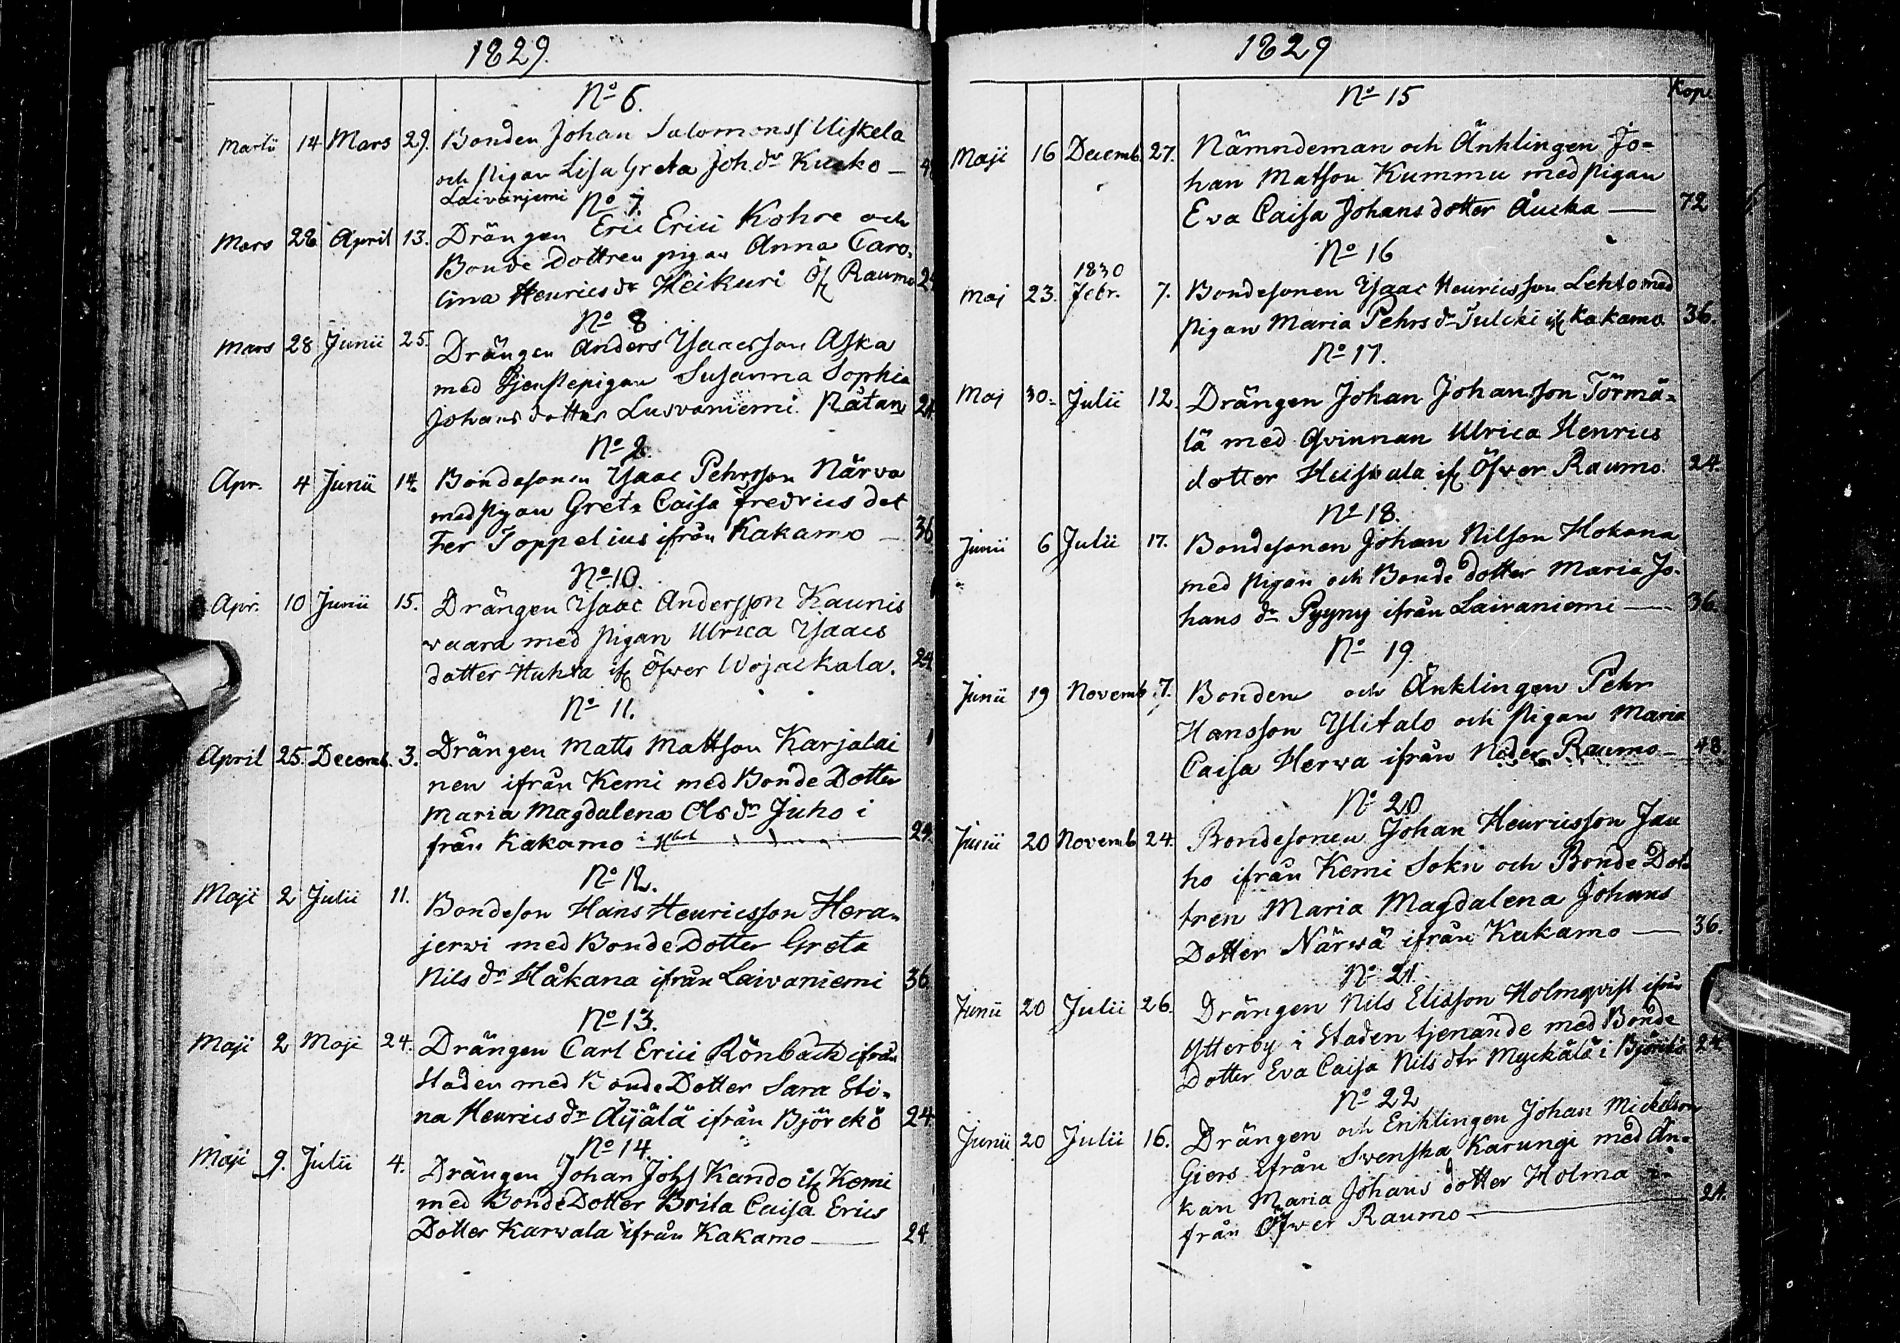 1829.
No 6.
Martii 14 Mars 29. Bonden Johan Salomonss Uiskela
och pigan Lisa Greta Joh. dr Kucko —
Laivanjemi No 7.
Mars 22 April 13. Drängen Eric Erici Kohre och
Bonde dottren pigan Anna Caro-
lina Henrics dr Heikuri Öf Raumo 24
No 8
Mars 28 Junii 25. Drängen Anders Ysaacsson Aska
med tjenstepigan Susanna Sophia
Johans dotter Lusvaniemi Nätan 24
No 9.
Apr. 4 Junii 14. Bondesonen Ysaac Pehrsson Närva
med pigan Greta Caisa Fredrics dot
ter Toppelius ifrån Kakamo — 36
No 10.
Apr. 10 Junii 15. Drängen Ysaac Andersson Kaunis
vaara med pigan Ulrica Ysaacs
dotter Huhta if Öfver Wojackala. 24
No 11.
April 25. Decemb. 3. Drängen Matts Mattson Karjalai
nen ifrån Kemi med Bonde Dotter
Maria Magdalena Ols dr Juho i
från Kakamo — 24
No 12.
Maji 2 Julii 11. Bondeson Hans Henricsson Hera-
jerwi med Bonde Dotter Greta
Nils dr Håkana ifrån Laivaniemi 36
No 13.
Maji 2 Maji 24. Drängen Carl Erici Rönbäck ifrån
Staden med Bonde Dotter Sara Sti-
na Henrics dr Äijälä ifrån Björckö 24
No 14.
Maji 9. Julii 4. Drängen Johan Johs Kando if Kemi
med Bonde Dotter Brita Caisa Erics
Dotter Karvala ifrån Kakamo — 24
1829
No 15 Kope
Maji 16 Decemb. 27. Nämndeman och Änklingen Jo-
han Matson Kummu med pigan
Eva Caisa Johans dotter Aucka — 72
No 16
1830
Maj 23. Febr. 7. Bondesonen Ysaac Henricsson Lehto med
pigan Maria Pehrs dr Julcki if Kakamo. 36.
No 17.
Maj 30. Julii 12. Drängen Johan Johansson Törmä-
lä med Qvinnan Ulrica Henrics
dotter Heiskala if Öfwer Raumo. 24.
No 18.
Junii 6 Julii 17. Bondesonen Johan Nilson Hokana
med pigan och Bonde dotter Maria Jo-
hans dr Pyyny ifrån Laivaniemi — 36
No 19.
Junii 19 Novemb. 7. Bonden och Änklingen Pehr
Hansson Ylitalo och pigan Maria
Caisa Herva ifrån Neder Raumo — 48.
No 20
Junii 20 Novemb 24. Bondesonen Johan Henricsson Jau
ho ifrån Kemi Sokn och Bonde Dot
tren Maria Magdalena Johans
Dotter Närwä ifrån Kakamo — 36.
No 21.
Junii 20 Julii 26. Drängen Nils Elisson Holmqvist ifrån
Ytterby i Staden tjenande med Bonde
Dotter Eva Caisa Nils dtr Myckälä i Björckö 24
No 22
Junii 20 Julii 16. Drängen och Enklingen Johan Mickelson
Giers ifrån Svenska Karungi med än-
kan Maria Johans dotter Holma i-
från Öfwer Raumo — 24.